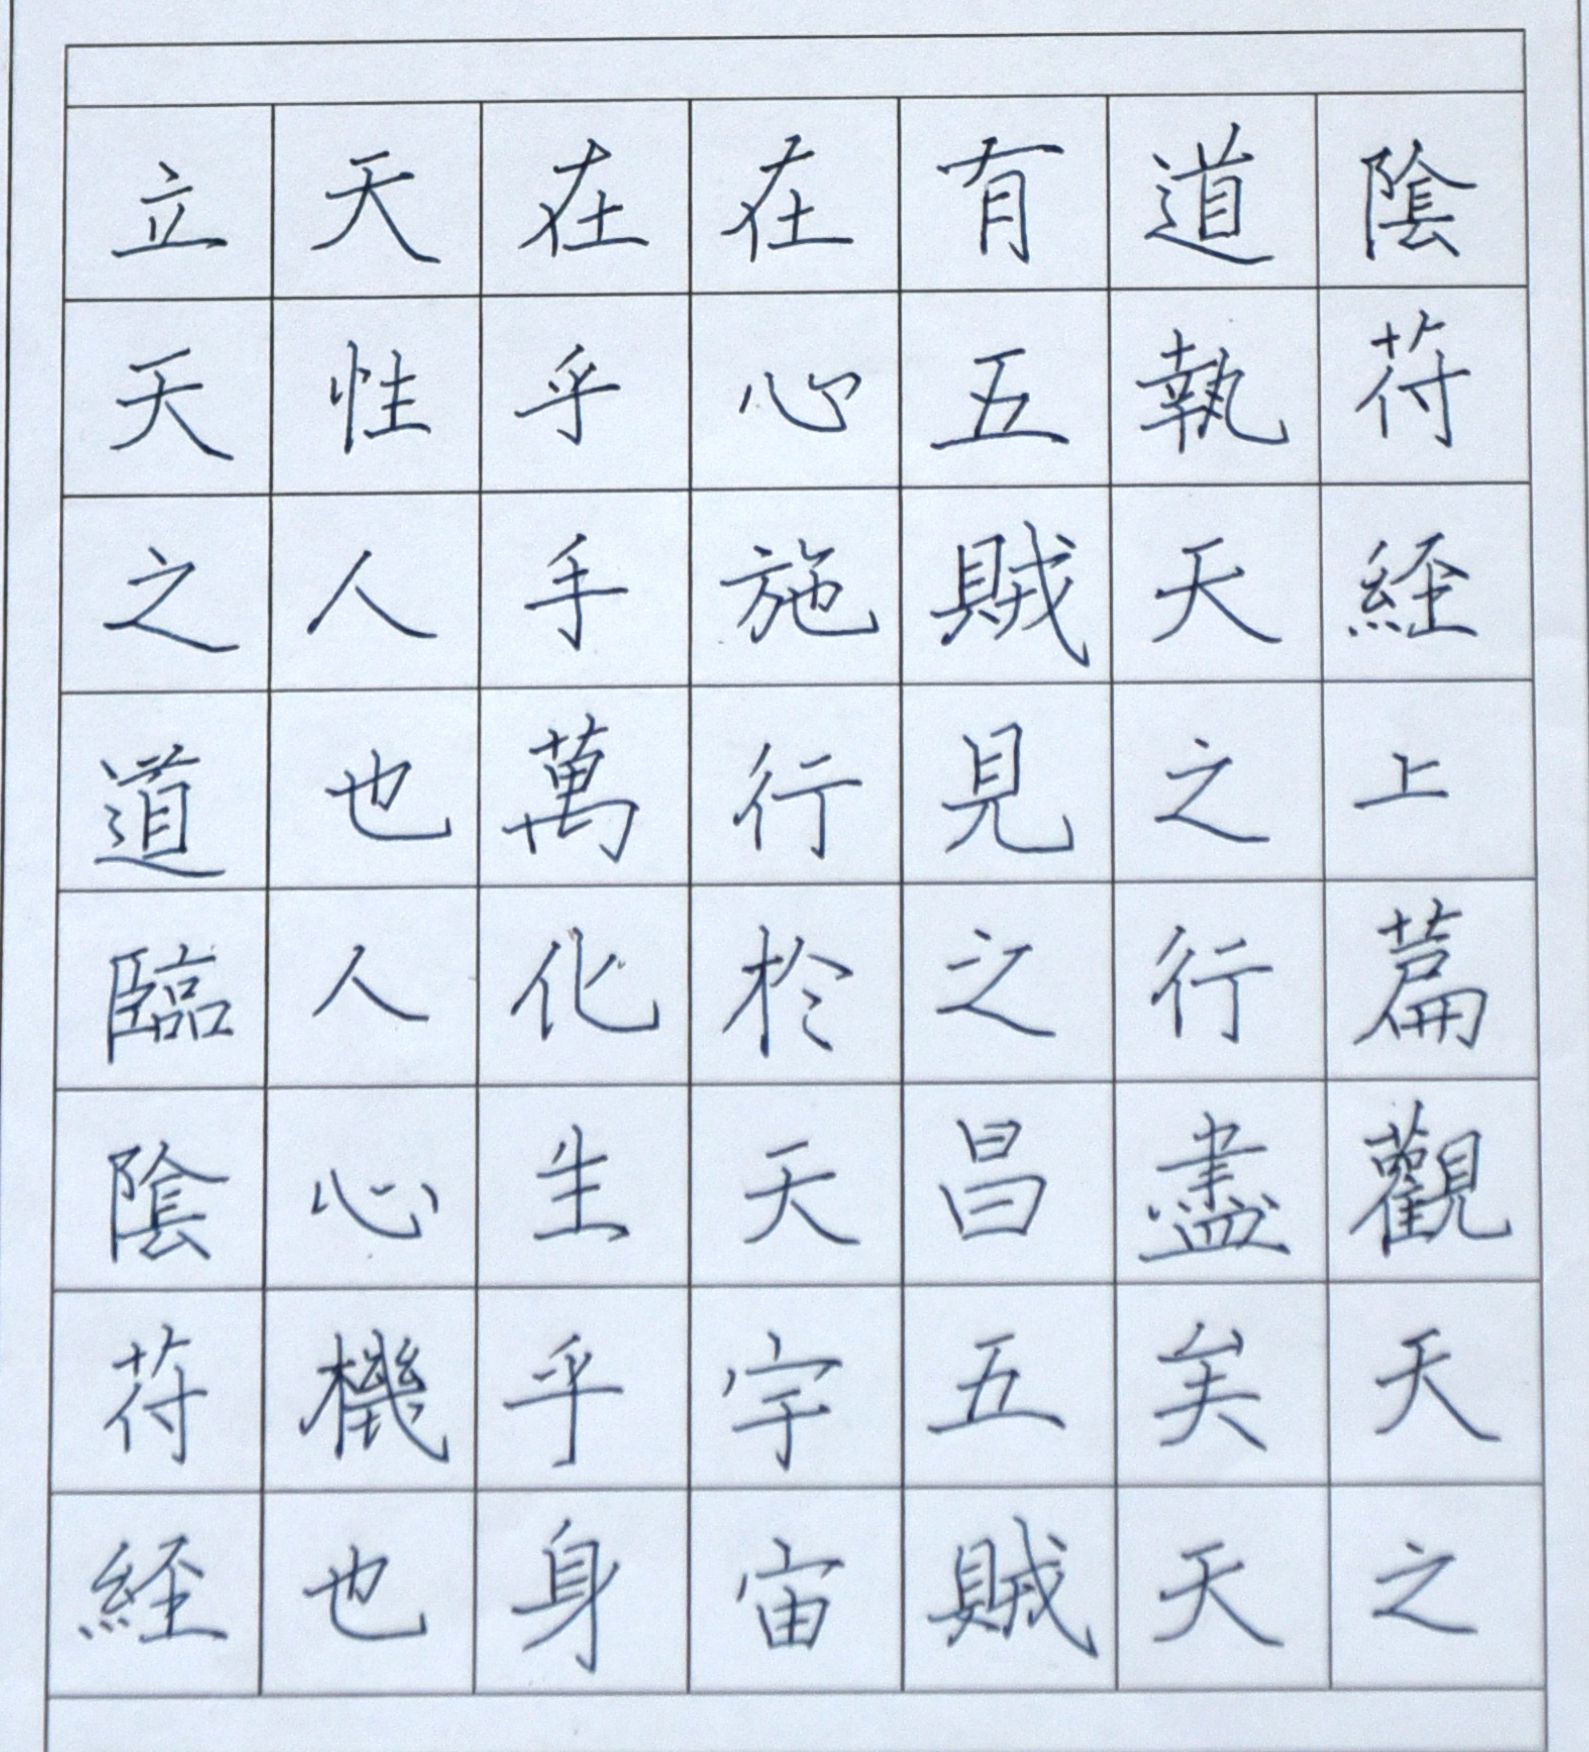 陰符経上篇觀天之
道執天之行盡矣天
有五賊見之昌五賊
在心施行於天宇宙
在乎手萬化生乎身
天性人也人心機也
立天之道臨陰符経